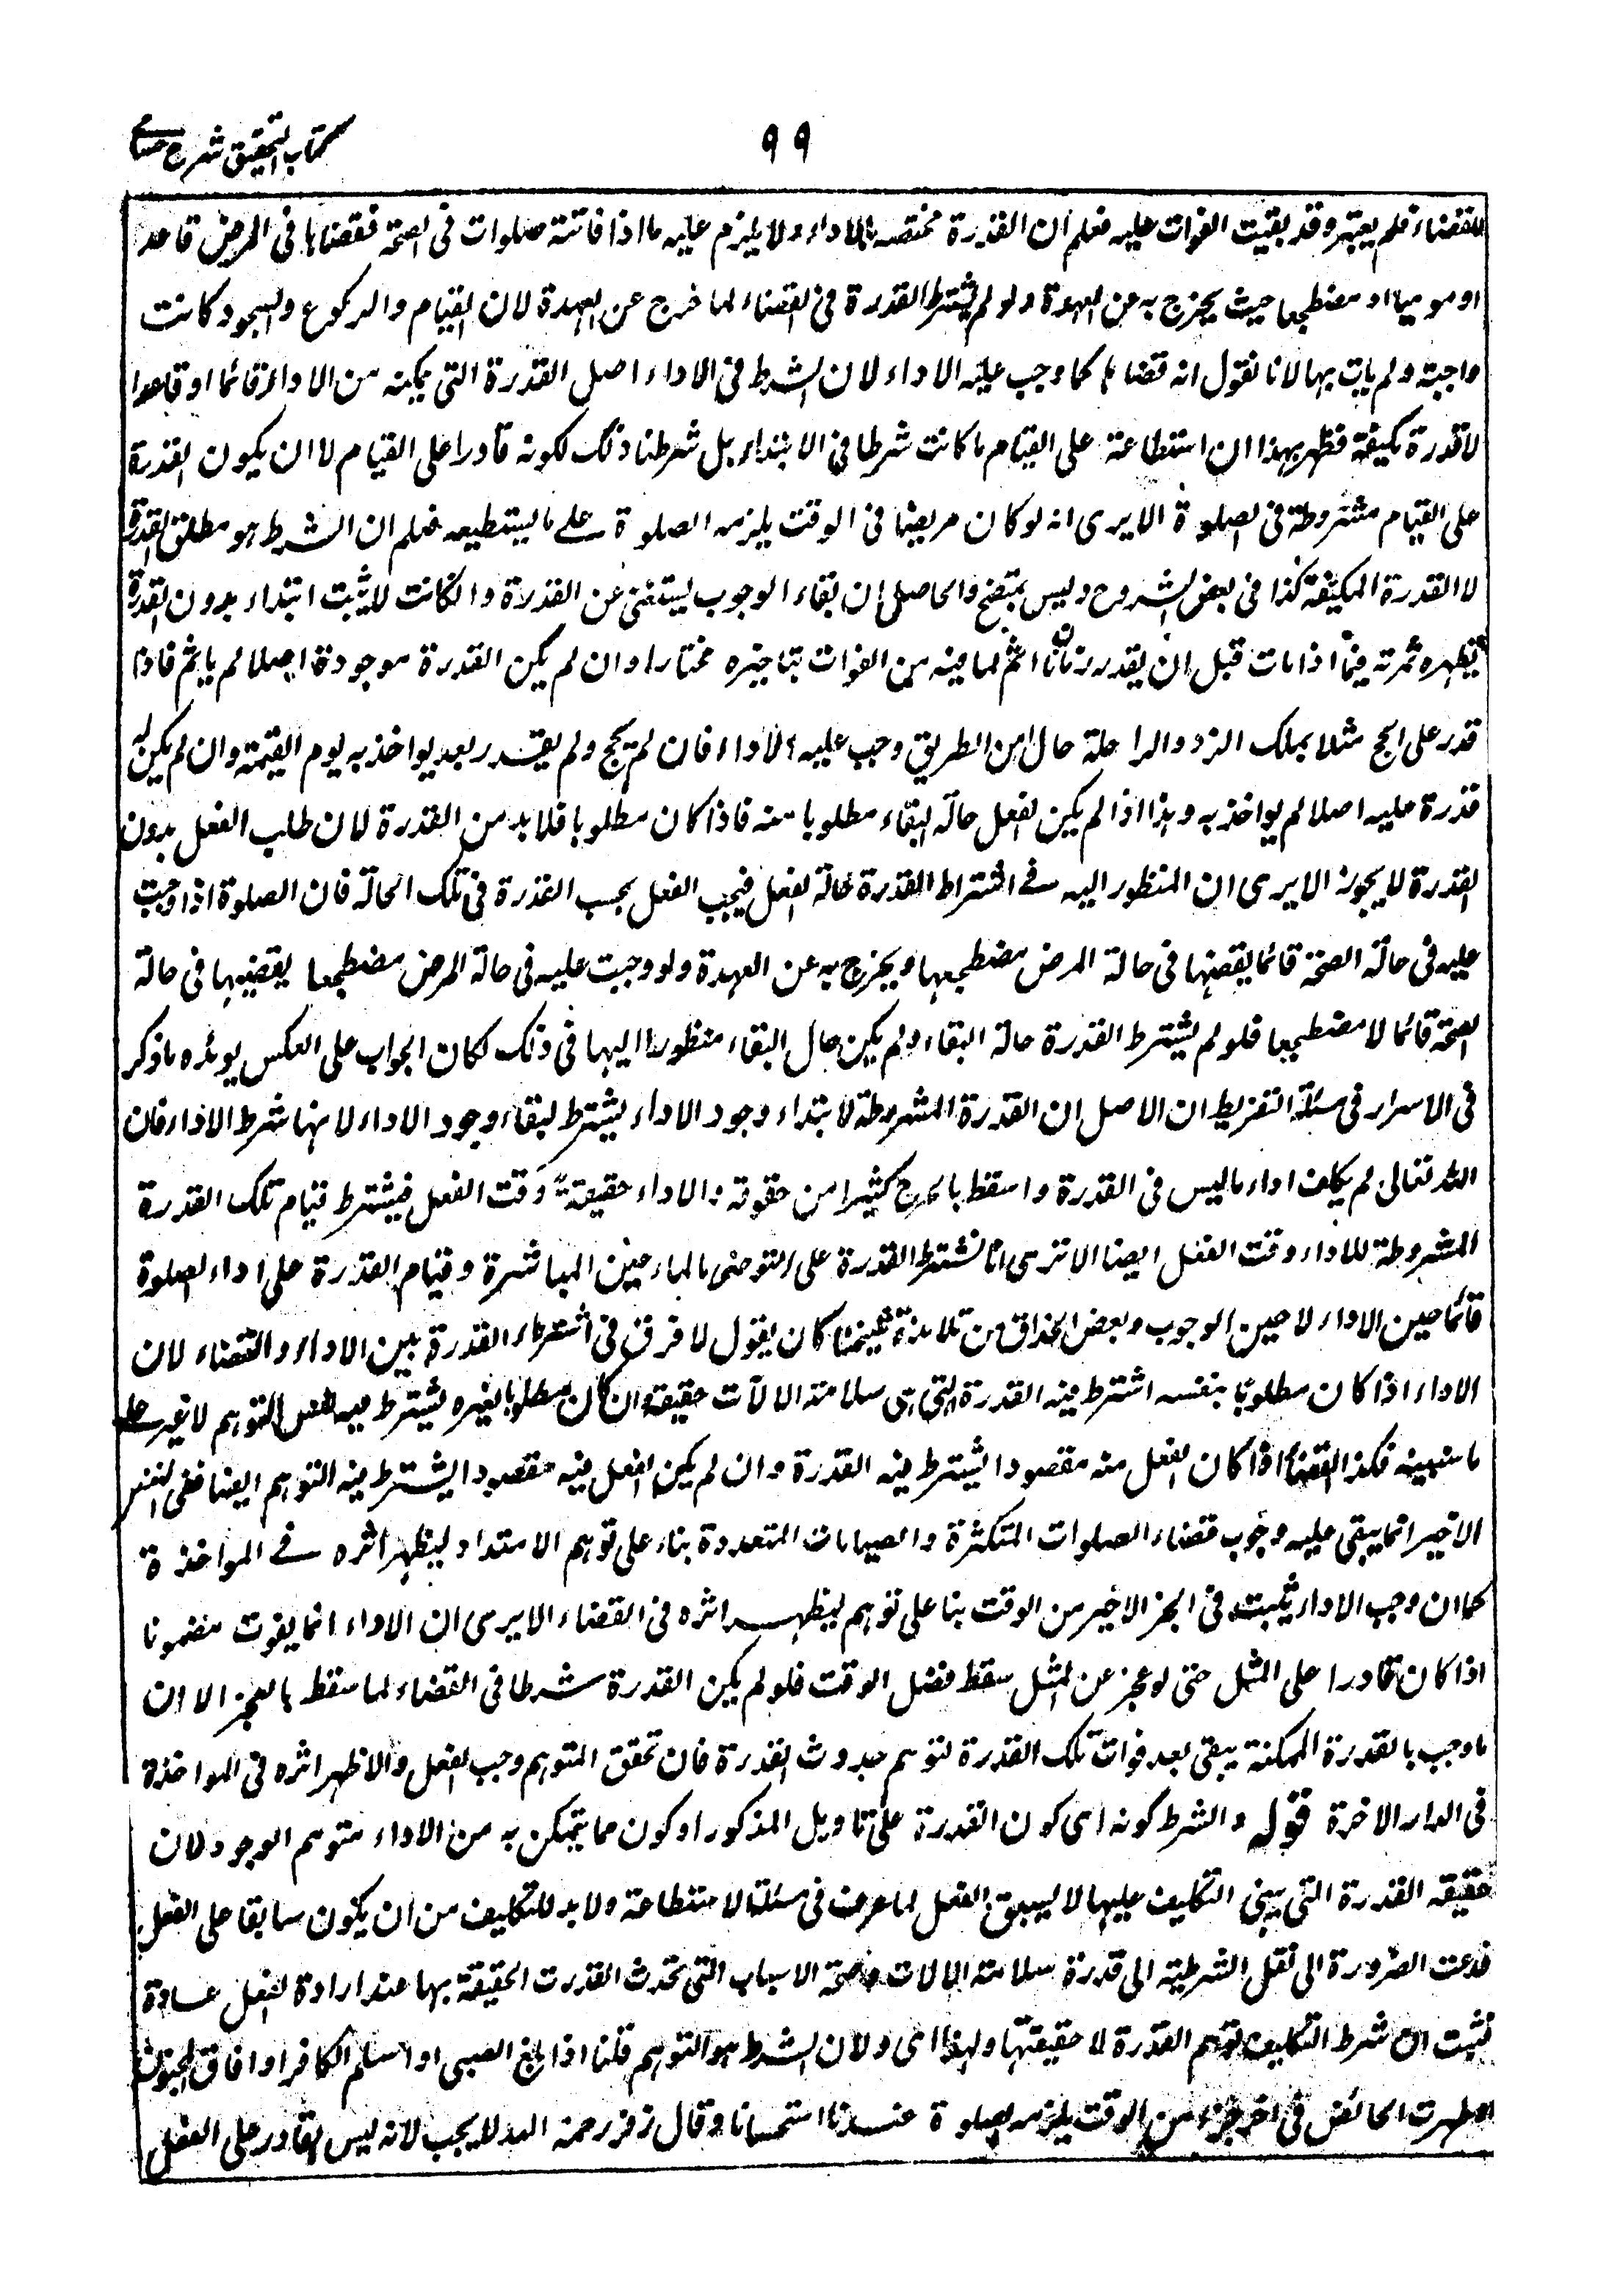 كتاب التحقيق شرح حسامى
٩٩
للقضاء فلم يعتبر وقد بقيت الفوات عليه فعلم ان القدرة مختصه بالاداء ولا يلزم عليه ما اذا فاتته صلوات فى الصحة فقضاها فى المرض قاعد
او موميا او مضطجعا حيث يخرج به عن العهدة ولو لم يشترط القدرة فى القضاء لما خرج عن العهدة لان القيام والركوع والسجود كانت
واجبة ولم يات بها لانا نقول انه قضاها كما وجب عليه الاداء لان الشرط فى الاداء اصل القدرة التى يمكنه من الاداء قائما او قاعدا
لا قدرة مكيفة فظهر بهذا ان استطاعة على القيام ما كانت شرطا فى الابتداء بل شرطنا ذلك لكونه قادرا على القيام لا ان يكون القدرة
على القيام مشروطة فى الصلوة الا يرى انه لو كان مريضا فى الوقت يلزمه الصلوة على ما يستطيعه فعلم ان الشرط هو مطلق القدرة
لا القدرة المكيفة كذا فى بعض الشروح وليس بمتضح والحاصل ان بقاء الوجوب يستغنى عن القدرة وان كانت لا يثبت ابتداء بدون القدرة
يظهره ثمرته فيما اذا مات قبل ان يقدر زمانا اثم لما فيه من الفوات بتاخيره مختارا وان لم يكن القدرة موجودة اصلا لم ياثم فاذا
قدر على الحج مثلا بملك الزاد والراحلة حال امن الطريق وجب عليه الاداء فان لم يحج ولم يقدر بعد يواخذ به يوم القيمة وان لم يكن له
قدرة عليه اصلا لم يواخذ به وهذا اذا لم يكن الفعل حالة البقاء مطلوبا منه فاذا كان مطلوبا فلا بد من القدرة لان طلب الفعل بدون
القدرة لا يجوز الا يرى ان المنظور اليه فى اشتراط القدرة حالة الفعل فيجب الفعل بحسب القدرة فى تلك الحالة فان الصلوة اذا وجبت
عليه فى حالة الصحة قائما يقضيها فى حالة المرض مضطجعا ويخرج به عن العهدة ولو وجبت عليه فى حالة المرض مضطجعا يقضيها فى حالة
الصحة قائما لا مضطجعا فلو لم يشترط القدرة حالة البقاء ولم يكن حال البقاء منظورا اليها فى ذلك لكان الجواب على العكس يويده ما ذكر
فى الاسرار فى مسئلة التفريط ان الاصل ان القدرة المشروطة لابتداء وجود الاداء يشترط لبقاء وجود الاداء لانها شرط الاداء فان
الله تعالى لم يكلف اداء ما ليس فى القدرة واسقط بالحرج كثيرا من حقوقه والاداء حقيقة وقت الفعل فيشترط قيام تلك القدرة
المشروطة للاداء وقت الفعل ايضا الا ترى انا نشترط القدرة على التوضى بالماء حين المباشرة وقيام القدرة على اداء الصلوة
قائما حين الاداء لا حين الوجوب وبعض الحذاق من تلامذة شيخنا كان يقول لا فرق فى اشتراط القدرة بين الاداء والقضاء لان
الاداء اذا كان مطلوبا بنفسه اشترط فيه القدرة التى هى سلامة الالات حقيقة وان كان مطلوبا لغيره يشترط فيه نفس التوهم لا غير على
ما سنبينه فكذا القضاء اذا كان الفعل منه مقصودا يشترط فيه القدرة وان لم يكن الفعل فيه مقصودا يشترط فيه التوهم ايضا ففى النفس
الاخير انما يبقى عليه وجوب قضاء الصلوات المتكثرة والصيامات المتعددة بناء على توهم الامتداد ليظهر اثره فى المواخذة
كما ان وجب الاداء يثبت فى الجزء الاخير من الوقت بنا على توهم ليظهر اثره فى القضاء الا يرى ان الاداء انما يفوت مضمونا
اذا كان قادرا على المثل حتى لو عجز عن المثل سقط فضل الوقت فلو لم يكن القدرة شرطا فى القضاء لما سقط بالعجز الا ان
ما وجب بالقدرة الممكنة يبقى بعد فوات تلك القدرة لتوهم حدوث القدرة فان تحقق المتوهم وجب الفعل والا ظهر اثره فى المواخذة
فى الدار الاخرة قوله والشرط كونه اى كون القدرة على تاويل المذكور او كون مما يتمكن به من الاداء متوهم الوجود لان
حقيقه القدرة التى يبنى التكليف عليها لا يسبق الفعل لما عرف فى مسئلة الاستطاعة ولا بد للتكليف من ان يكون سابقا على الفعل
فدعت الضرورة الى نقل الشرطية الى قدرة سلامة الالات وصحة الاسباب التى تحدث القدرت الحقيقة بها عند ارادة الفعل عادة
فثبت ان شرط التكليف توهم القدرة لا حقيقتها ولهذا اى ولان الشرط هو التوهم قلنا اذا بلغ الصبى او اسلم الكافر او افاق المجنون
او طهرت الحائض فى اخر جزء من الوقت يلزمه الصلوة عندنا استحسانا وقال زفر رحمة الله لا يجب لانه ليس بقادر على الفعل